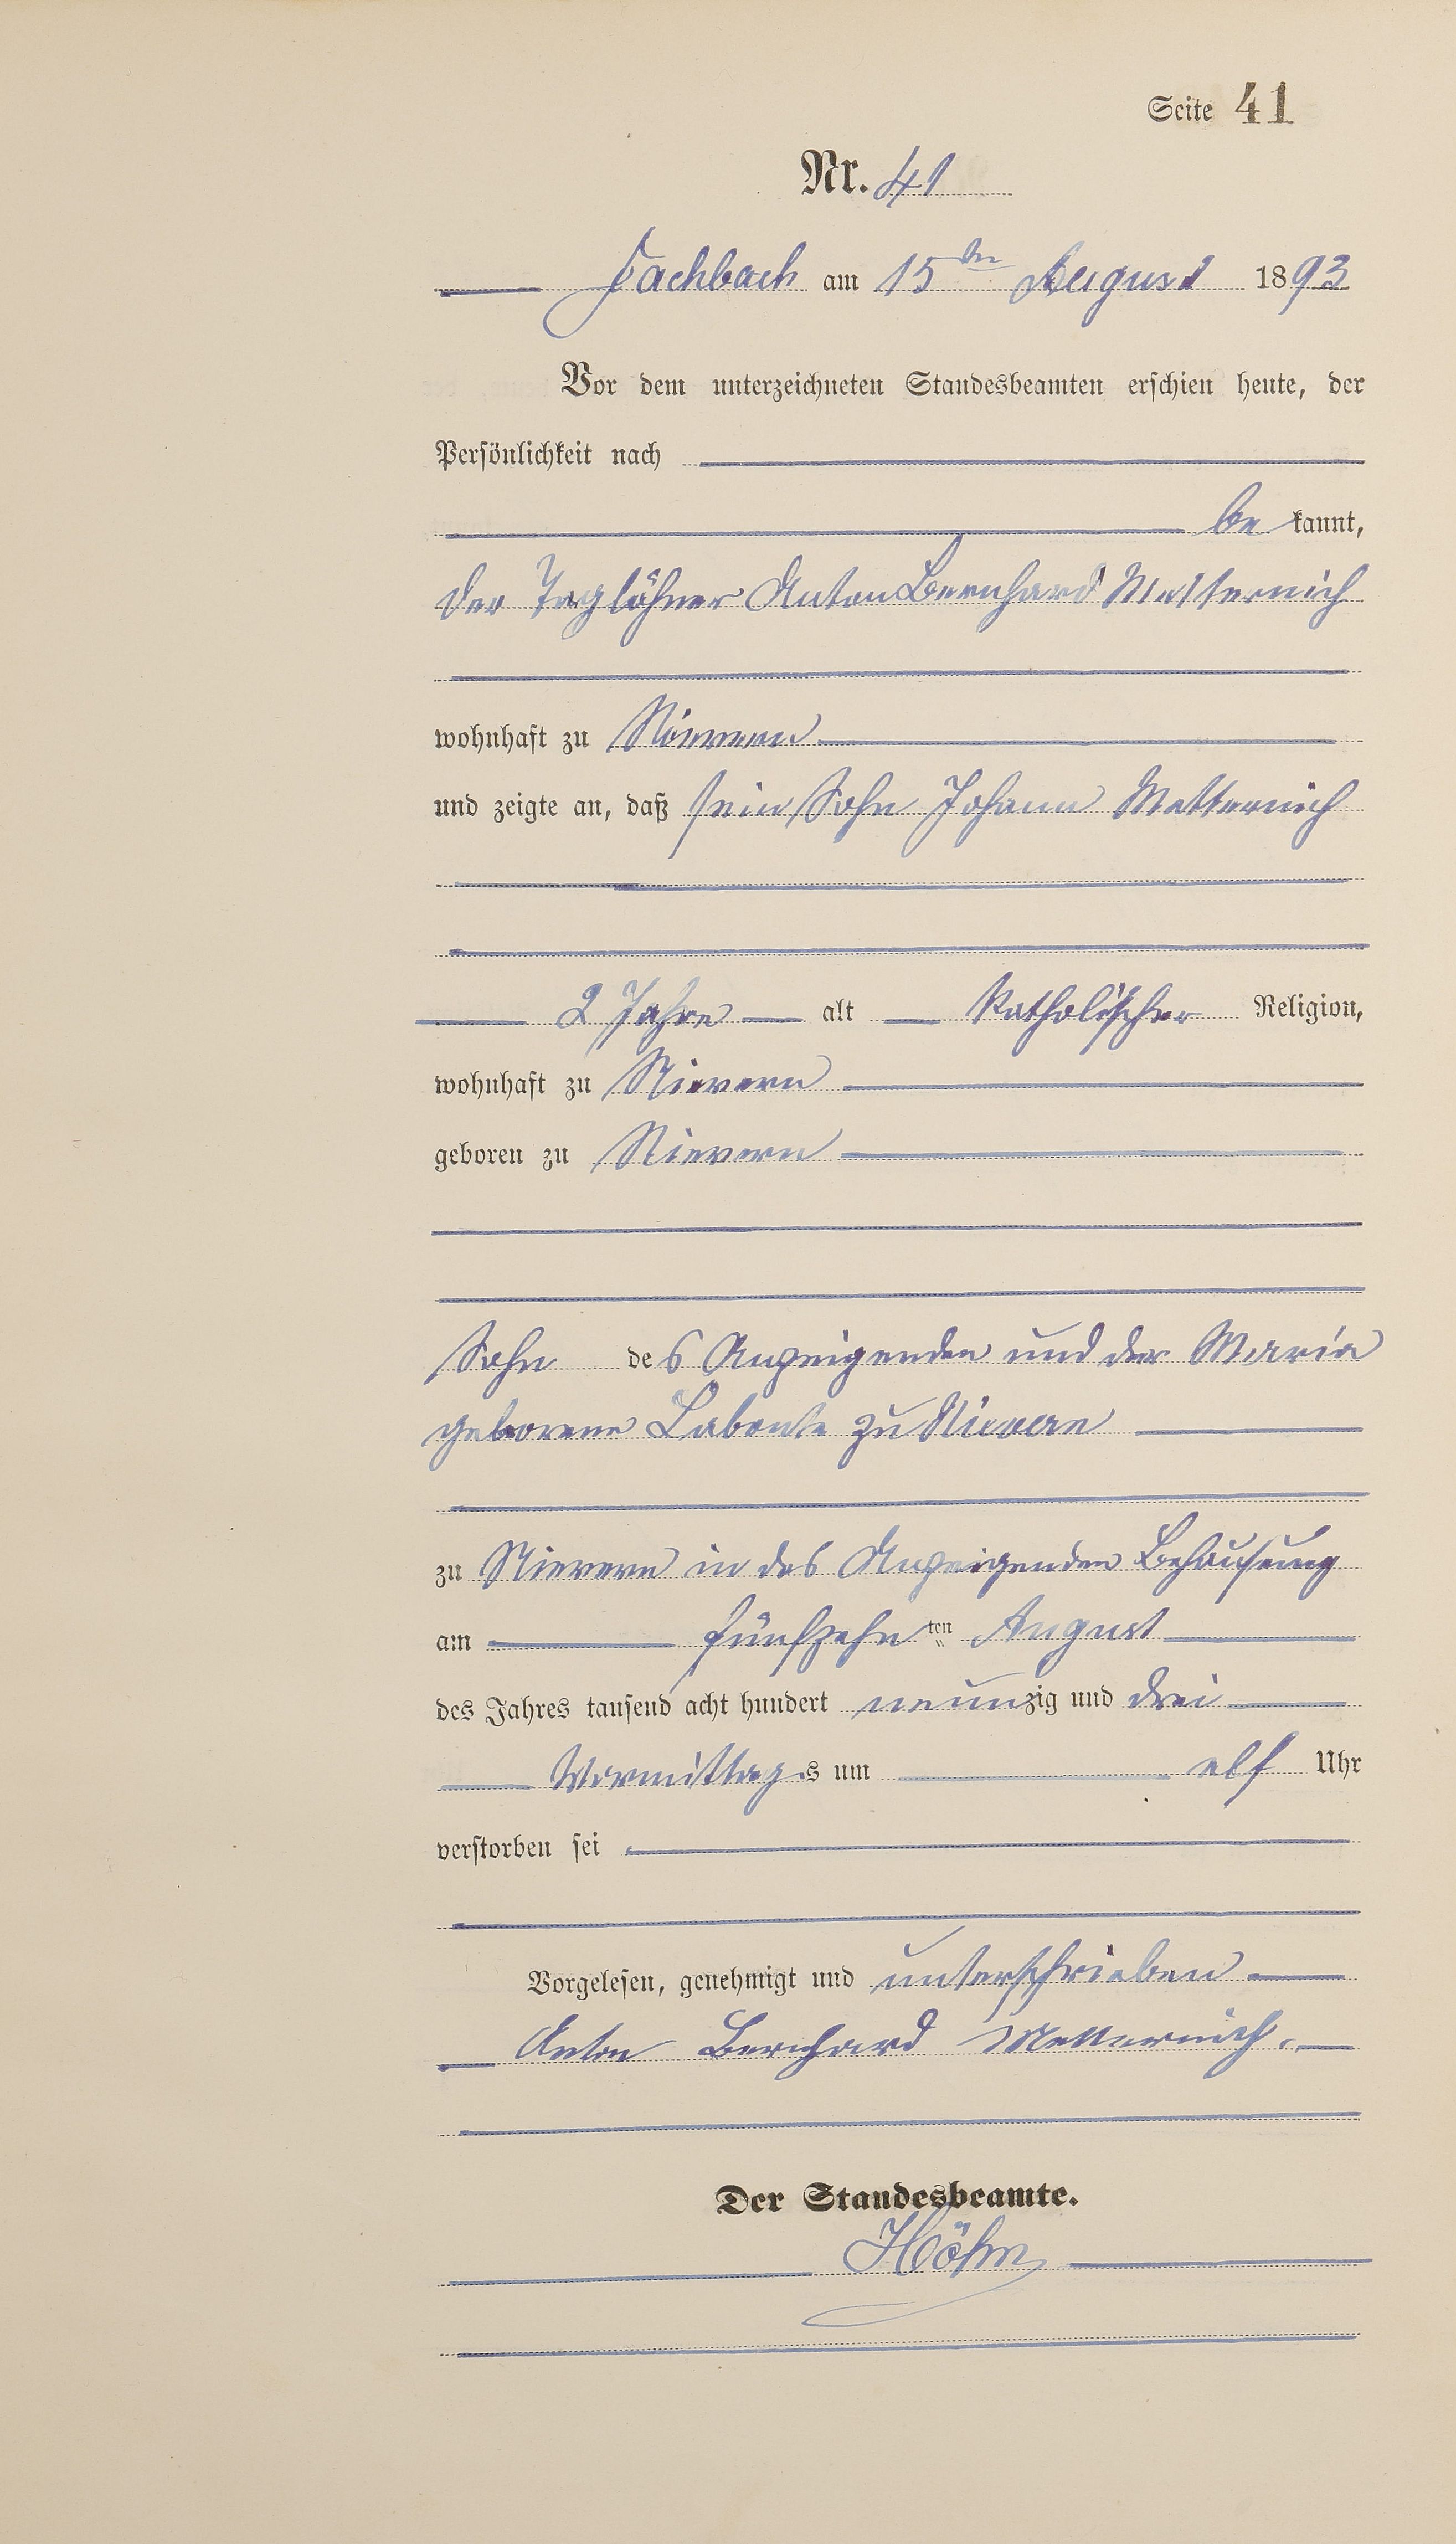 Seite 41
Nr. 41
Fachbach am 15ten August 1893
Vor dem unterzeichneten Standesbeamten erschien heute, der
Persönlichkeit nach
bekannt,
der Taglöhner Anton Bernhard Metternich
wohnhaft zu Nievern
und zeigte an, daß sein Sohn Johann Metternich
2 Jahre alt katholischer Religion,
wohnhaft zu Nievern
geboren zu Nievern
Sohn des Anzeigenden und der Maria
geborene Labonte zu Nievern
zu Nievern in des Anzeigenden Behausung
am fünfzehnten August
des Jahres tausend acht hundert neunzig und drei
Vormittags um elf Uhr
verstorben sei
Vorgelesen, genehmigt und unterschrieben
Anton Bernhard Metternich.
Der Standesbeamte.
Höhn